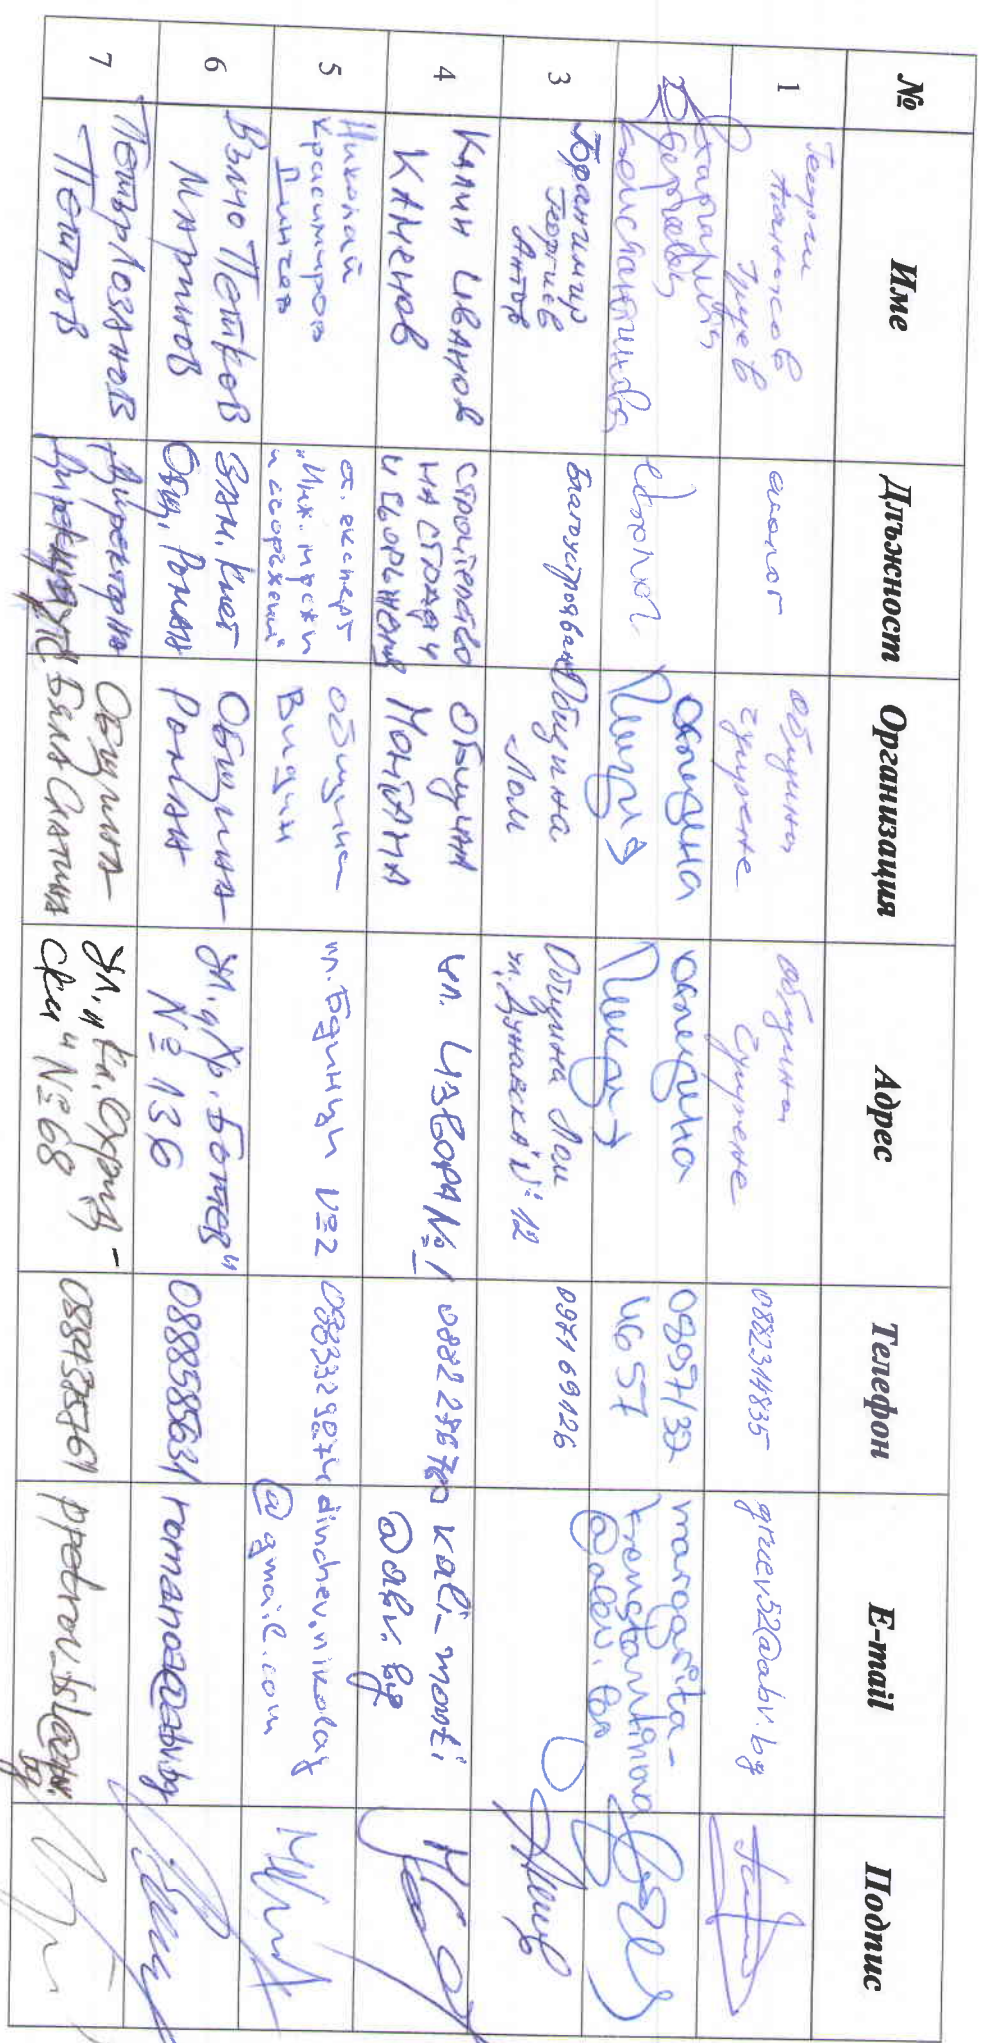 № Име Длъжност Организация Адрес Телефон E-mail Подпис
1
Георги
Атанасов
Груев
еколог
община
Гулянци
община
0882314835
gruev52@abv.bg
2
Маргарита
Константинова
еколог
община
община
0895713746 57
margarita-
konstantinova
@abv.bg
3
Бранимир
Георгиев
Антов
Благоустройване
Община
Лом
Община Лом
ул. "Дунавска" №12
0971 69126
4
Калин Иванов
Каменов
строителство
на сгради
и съоръжения
община
Монтана
ул. Извора №1
kali-monti
@abv.bg
5
Николай
Красимиров
Динчев
ст. експерт
"Инж. мрежи
и съоръжения"
община
Видин
пл. Бдинци №2
dinchev.nikolay
@gmail.com
6
Вълчо Петков
Мартинов
Зам. кмет
Общ. Роман
Община
Роман
ул. "Хр. Ботев"
№ 136
0888585631
7
Петър Лозанов
Петров
Директор на
Община
Бяла Слатина
ул. "Кл. Охрид-
ски" №68